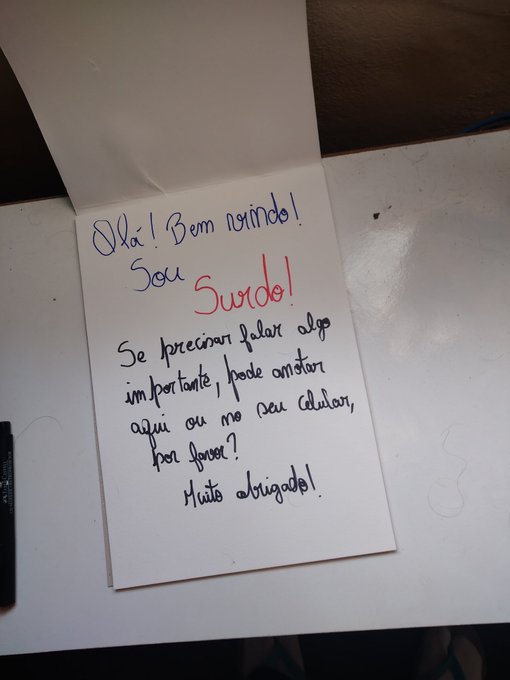 Olá! Bem vindo!
Sou
Surdo!
Se precisar falar algo
importante, pode anotar
aqui ou no seu celular,
por favor?
Muito obrigado!